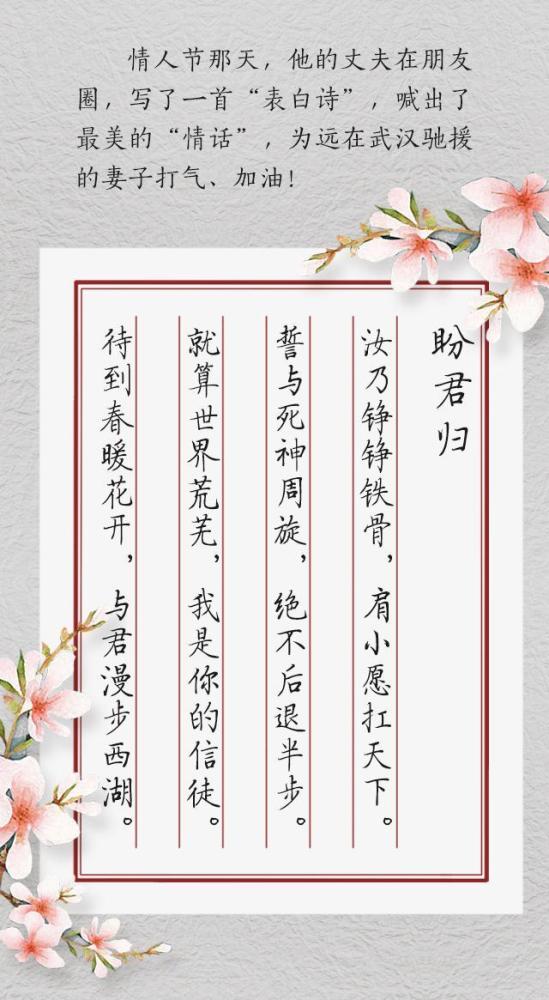 情人节那天，他的丈夫在朋友
圈，写了一首“表白诗”，喊出了
最美的“情话”，为远在武汉驰援
的妻子打气、加油！
盼君归
汝乃铮铮铁骨，肩小愿扛天下。
誓与死神周旋，绝不后退半步。
就算世界荒芜，我是你的信徒。
待到春暖花开，与君漫步西湖。